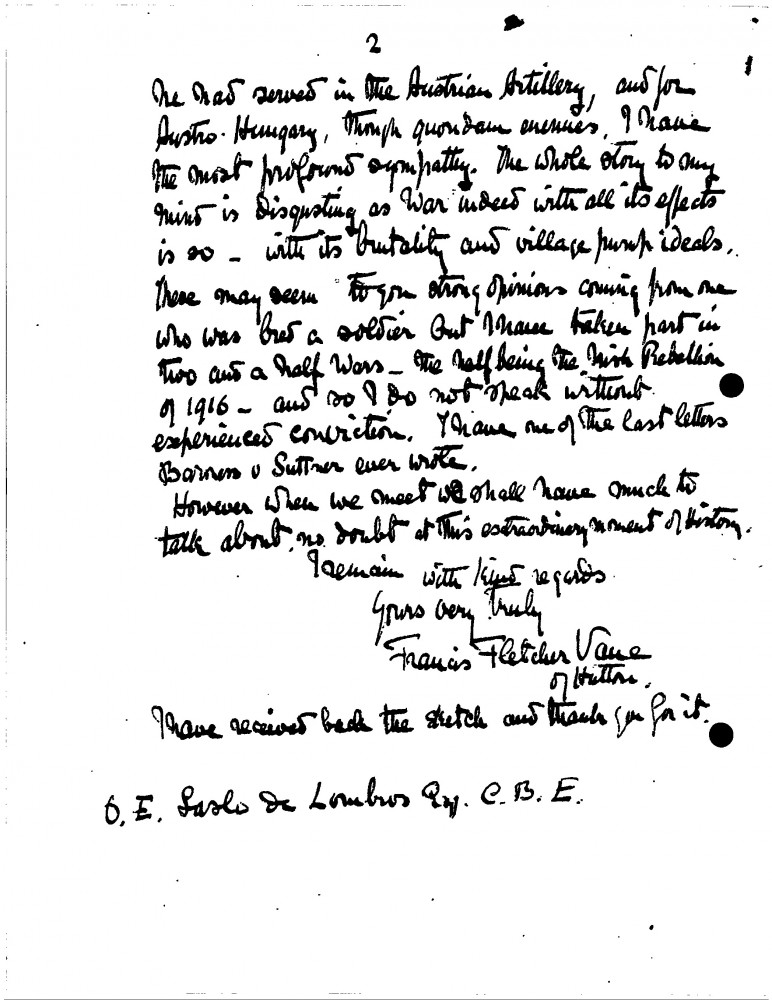 2
he had served in the Austrian Artillery, and for
Austro-Hungary, though quondam enemies, I have
the most profound sympathy. The whole story to my
mind is disgusting as War indeed with all its effects
is so – with its brutality and village pump ideals.
These may seem to you strong opinions coming from one
who was bred a soldier but I have taken part in
two and a half Wars – the half being the Irish Rebellion
of 1916 – and so I do not speak without
experienced conviction. I have one of the last letters
Baroness v Suttner ever wrote.
However when we meet we shall have much to
talk about, no doubt at this extraordinary moment of History.
I remain with kind regards
Yours very truly
Francis Fletcher Vane
of Hutton.
I have received back the sketch and thank you for it.
O. E. Laslo de Lombos Esq. C. B. E.